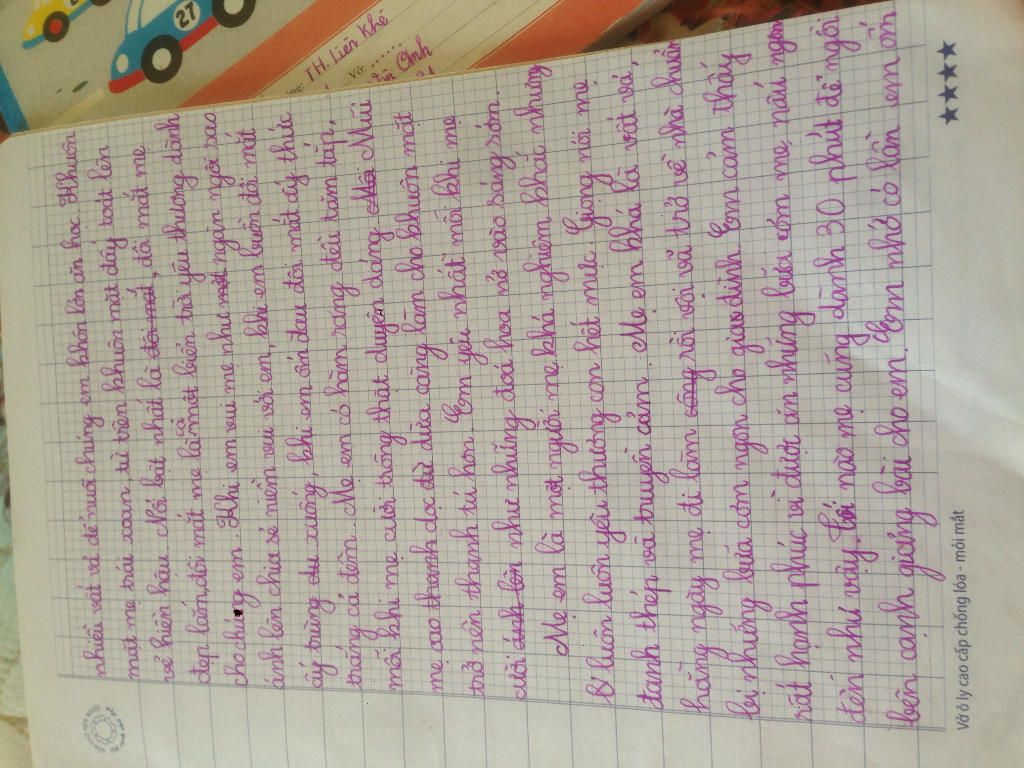 nhiều vất vả để nuôi chúng em khôn lớn ăn học. Khuôn
mặt mẹ trái xoan, từ trên khuôn mặt đấy toát lên
vẻ hiền hậu. Nổi bật nhất là đôi mắt, đôi mắt mẹ
đẹp lắm, đôi mắt mẹ là cả một biển trời yêu thương dành
cho chúng em. Khi em vui mẹ như một ngàn ngôi sao
ánh lên chia sẻ niềm vui với em, khi em buồn đôi mắt
ấy trùng du xuống, khi em ốn đau đôi mắt ấy thức
trắng cả đêm. Mẹ em có hàm răng đều tăm tắp,
mỗi khi mẹ cười trông thật duyên dáng. Mũi
mẹ cao thanh dọc dừ dừa càng làm cho khuôn mặt
trở nên thanh tú hơn. Em yêu nhất mỗi khi mẹ
cười ánh lên như những đoá hoa nở vào sáng sớm.
Mẹ em là một người mẹ khá nghiêm khắc nhưng
luôn luôn yêu thương con hết mực. Giọng nói mẹ
đanh thép và truyền cảm. Mẹ em khá là vất vả,
hằng ngày mẹ đi làm công rồi vội vã trở về nhà chuẩn
bị những bữa cơm ngon cho gia đình. Em cảm thấy
rất hạnh phúc vì được ăn những bữa cơm mẹ nấu ngon
đến như vậy. Tối nào mẹ cũng dành 30 phút để ngồi
bên cạnh giảng bài cho em. Em nhớ có lần em ốn
Vở ô ly cao cấp chống lóa - mỏi mắt
TH. Liên Khê
Vở:
27